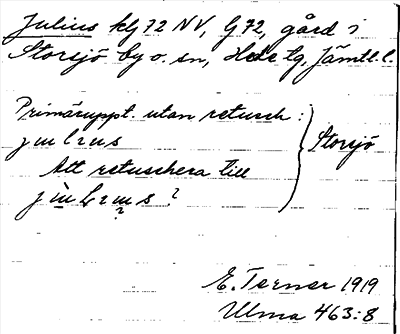 Julius klg 72 NV, G 72, gård i
Storsjö by o. sn, Hede tg, Jämtl. l.
Primäruppt. utan retusch:
Storsjö
Att retuschera till
E. Terner 1919
Ulma 463:8